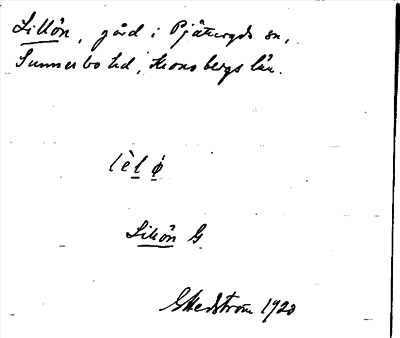 Lillön, gård i Pjätteryds sn,
Sunnerbo hd, Kronobergs län.
lèl ø
Lillön G
G Hedström 1920